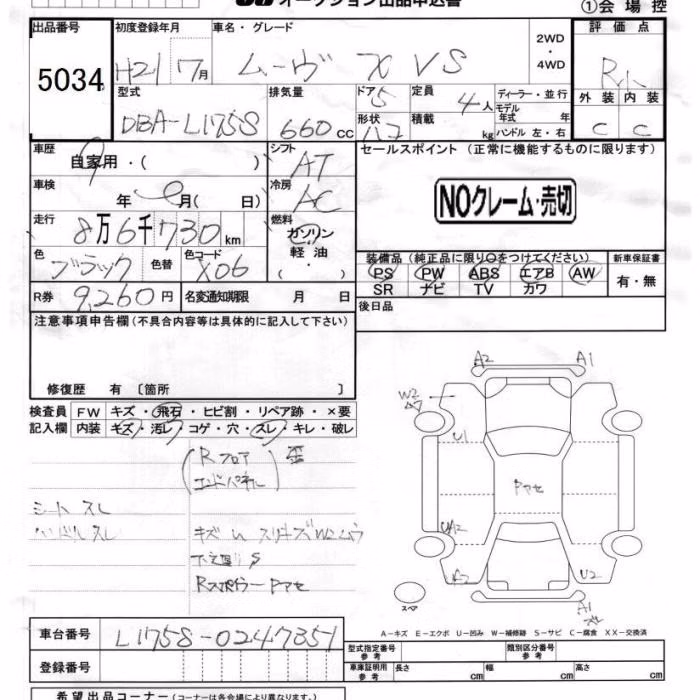 オークション出品申込書
①会場控
出品番号 5034
初度登録年月 H21 7月
車名・グレード ムーヴ X VS
2WD・4WD
評価点 R
外装 C 内装 C
型式 DBA-L175S
排気量 660cc
ドア 5
形状
定員 4人
積載 kg
ディーラー・並行
モデル年式 年
ハンドル 左・右
車歴 自家用・( )
シフト AT
セールスポイント (正常に機能するものに限ります)
NOクレーム・売切
車検 年 月( 日)
冷房 AC
走行 8万6千730km
燃料 ガソリン・軽油・( )
色 ブラック 色替
色コード X06
装備品 (純正品に限り○をつけてください)
PS PW ABS エアB AW
SR ナビ TV カワ
新車保証書 有・無
R券 9,260円
名変通知期限 月 日
後日品
注意事項申告欄(不具合内容等は具体的に記入して下さい)
修復歴 有 〔箇所 〕
検査員記入欄
FW キズ・飛石・ヒビ割・リペア跡・×要
内装 キズ・汚レ・コゲ・穴・スレ・キレ・破レ
Rフロア
エンドパネル
歪
シートスレ
ハンドルスレ
Rスポイラー Pアセ
A2 A1
W2
U1
Pアセ
UA2
A2 U2
A1
スペア
A-キズ E-エクボ U-凹み W-補修跡 S-サビ C-腐食 XX-交換済
車台番号 L175S-0247351
登録番号
型式指定番号 参考
類別区分番号 参考
車庫証明用 参考 長さ cm 幅 cm 高さ cm
希望出品コーナー(コーナーは各会場により異なります。)